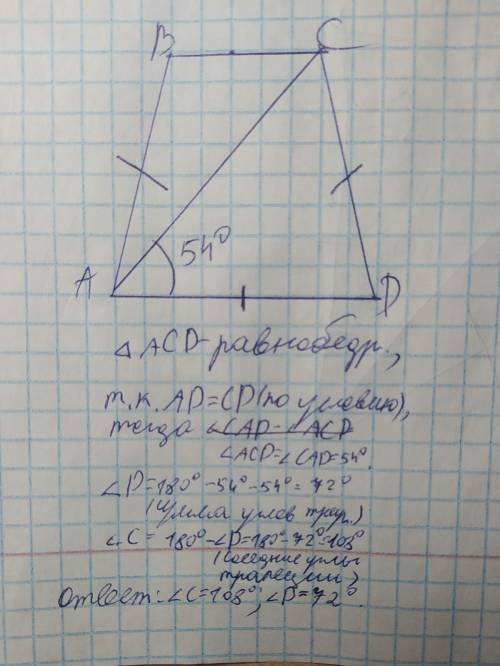 B C
54°
A D
△ACD-равнобедр.,
т.к. AD=CD(по условию),
тогда ∠CAD=∠ACD
∠ACD=∠CAD=54°.
∠D=180°-54°-54°=72°
(сумма углов треуг.)
∠C=180°-∠D=180°-72°=108°
(соседние углы
трапеции)
Ответ: ∠C=108°; ∠D=72°.